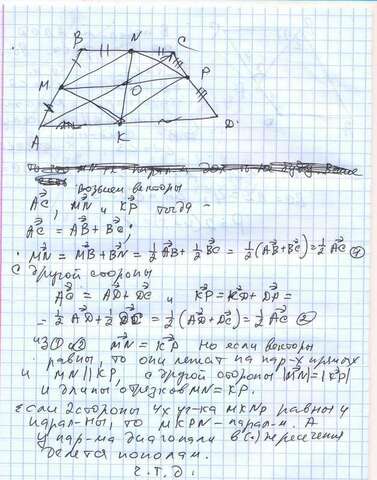 B N C
M O P
A K D
возьмем векторы
AC, MN и KP тогда
AC = AB + BC;
MN = MB + BN = 1/2 AB + 1/2 BC = 1/2 (AB + BC) = 1/2 AC ①
С другой стороны
AC = AD + DC и KP = KD + DP =
= 1/2 AD + 1/2 DC = 1/2 (AD + DC) = 1/2 AC ②
из ① и ② MN = KP но если векторы
равны, то они лежат на пар-х прямых
и MN || KP, с другой стороны |MN| = |KP|
и длины отрезков MN = KP.
Если 2 стороны 4х уг-ка MKNP равны и
парал-ны, то MKPN - парал-м. А
у пар-ма диагонали в (·) пересечения
делятся пополам.
ч.т.д.